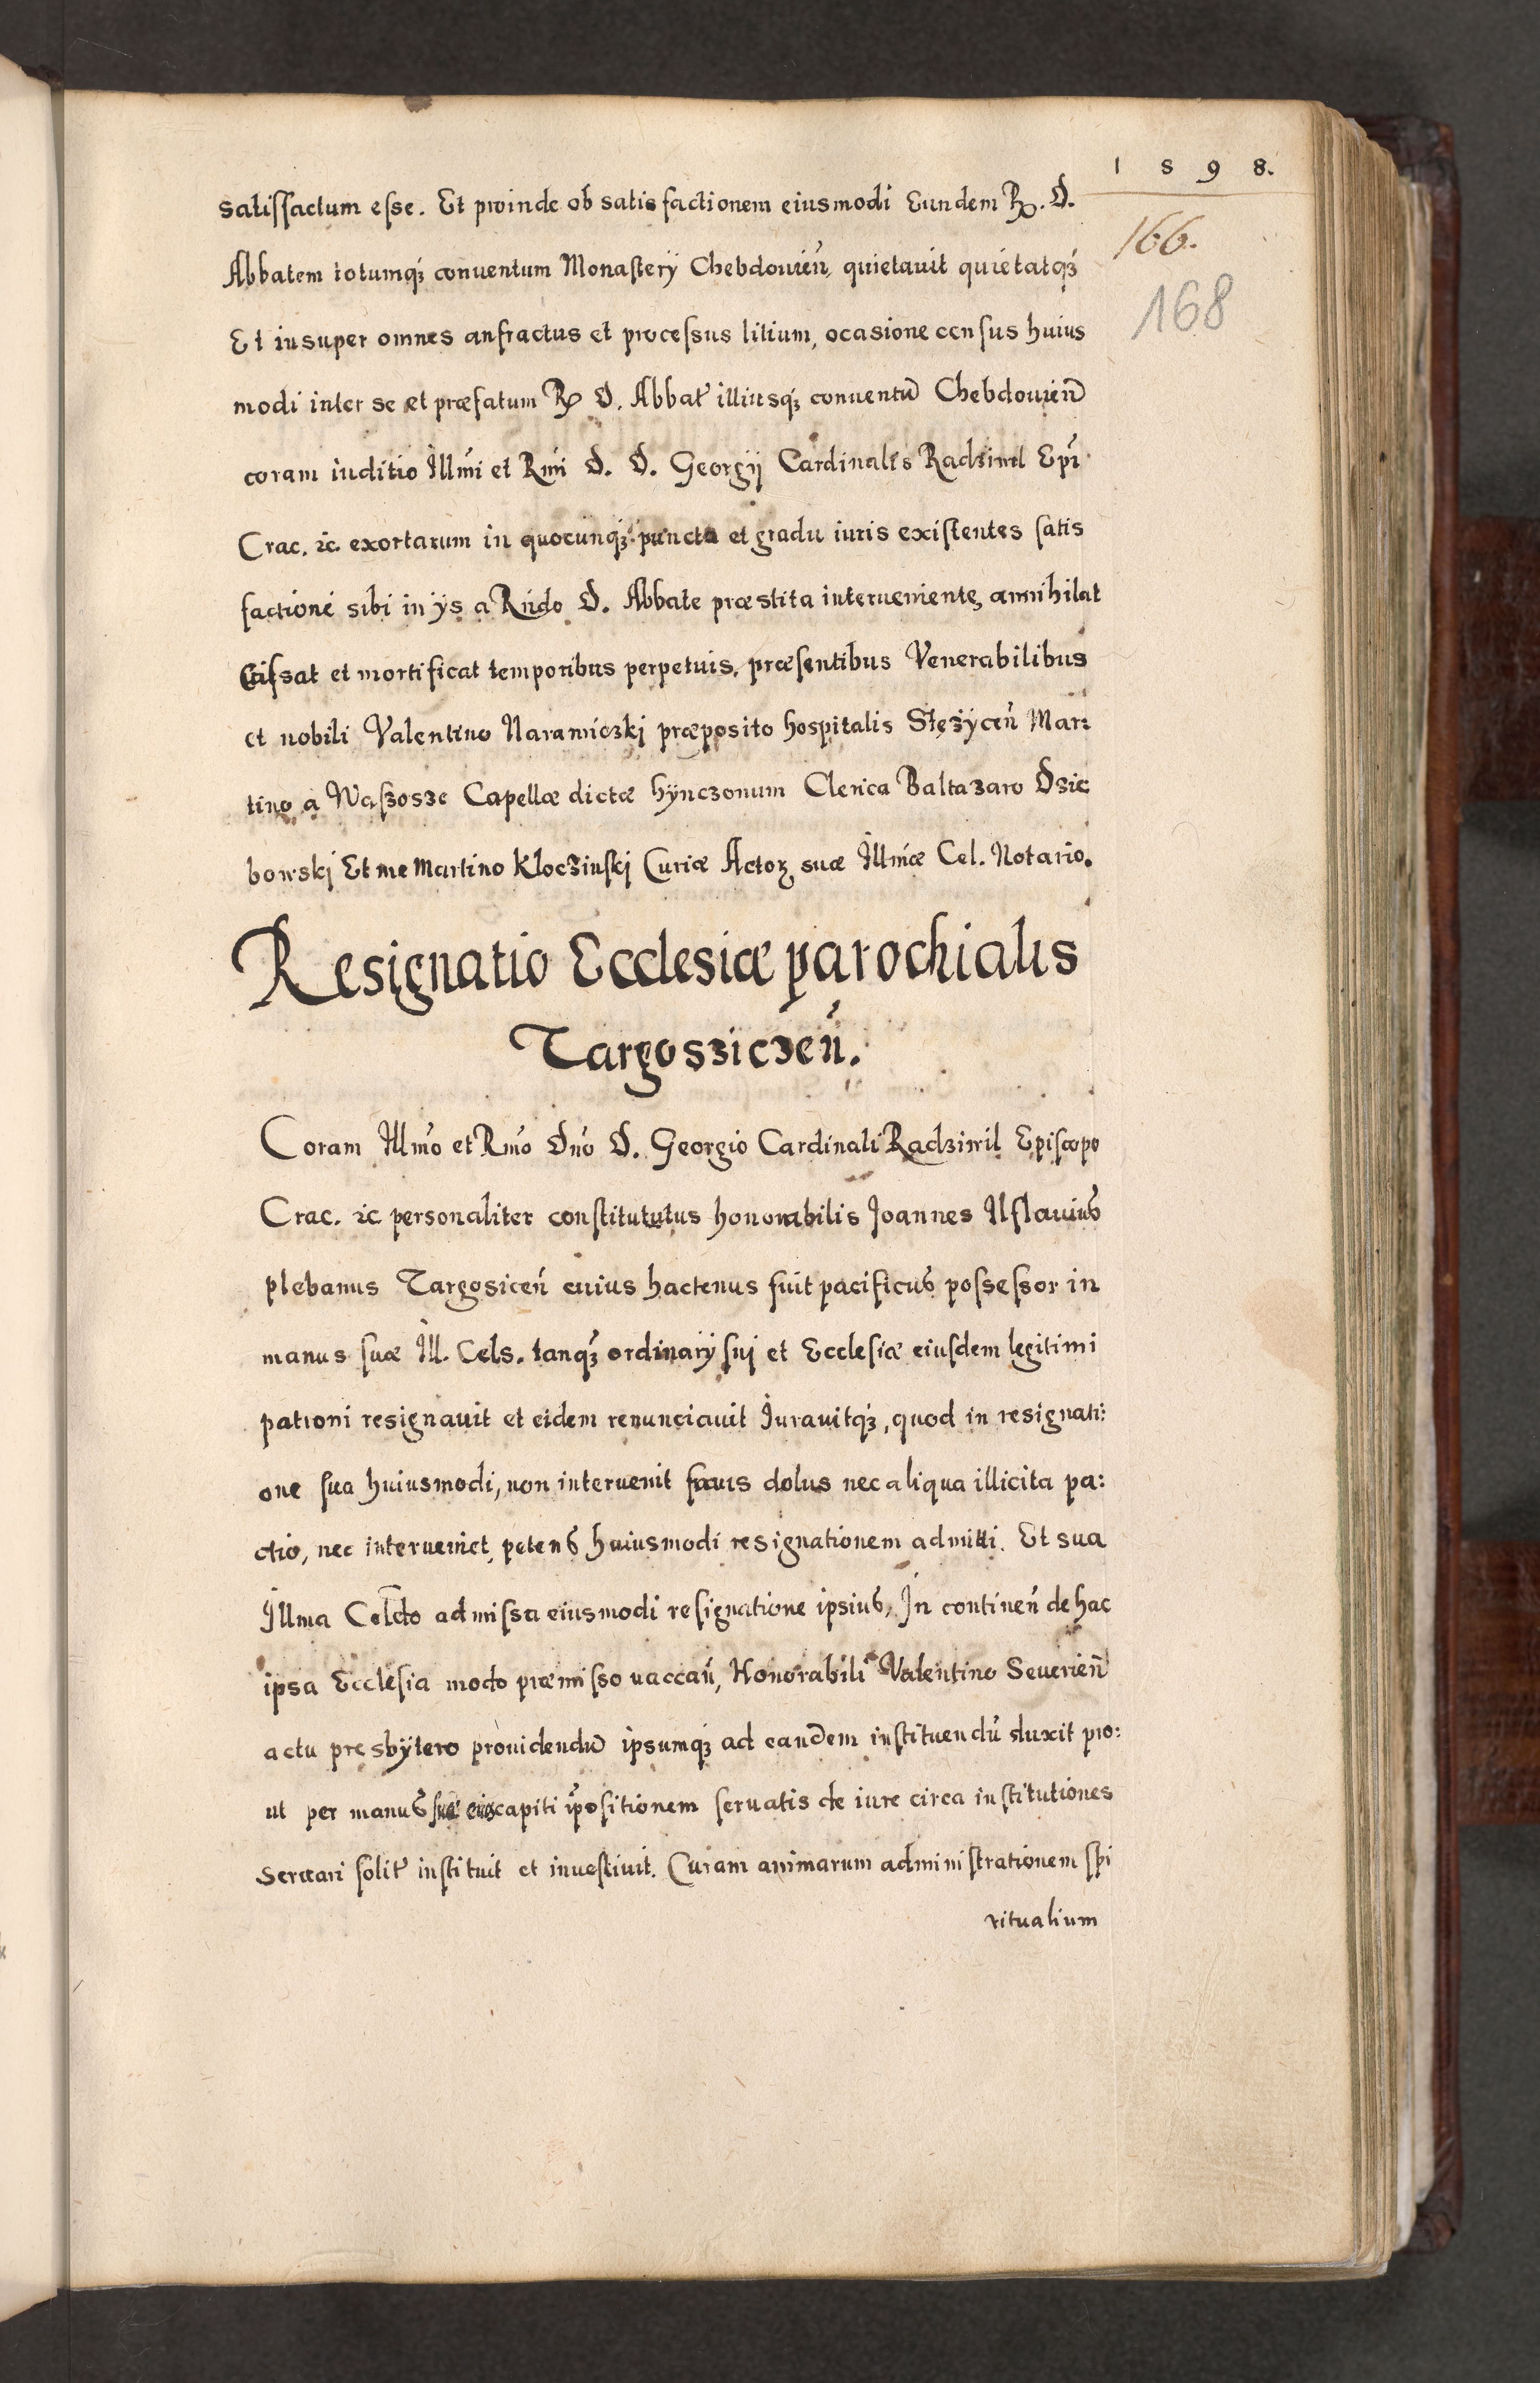 1 5 9 8.
166.
168
satisfactum esse. Et proinde ob satisfactionem eiusmodi Eundem R. D.
Abbatem totumq́ꝫ conuentum Monasterÿ Chebdouień, quietauit quietatq́ꝫ
Et insuper omnes anfractus et processus litium, ocasione census huius
modi inter se et præfatum R D. Abbat̃ illiusq́ꝫ conuentũ Chebdouień
coram iuditio Illm̃i et Rm̃i D. D. Georgÿ Cardinalis Radziwil Ep̃i
Crac. ꝛc. exortarum in quocunq́ꝫ puncto et gradu iuris existentes satis
factione sibi in ÿs a Rńdo D. Abbate præstita interueniente, annihilat
Cassat et mortificat temporibus perpetuis, præsentibus Venerabilibus
et nobili Valentino Naramiczkj præposito hospitalis Stężÿceń Mar:
tino a Wąszosze Capellæ dictæ hÿnczonum Clerica Baltazaro Dzie
bowskj Et me Martino Kłoczinskj Curiæ Actoꝝ suæ Illm̃æ Cel. Notario.
Resignatio Ecclesiæ parochialis
Targoszizceń.
Coram Illm̃o et Rm̃o Dńo D. Georgio Cardinali Radziwil Episcopo
Crac. ꝛc personaliter constitututus honorabilis Joannes Ilslauius
plebanus Targosiceń cuius hactenus fuit pacificus possessor in
manus suæ Ill. Cels. tanq́ꝫ ordinarÿ suj et Ecclesiæ eiusdem legitimi
patroni resignauit et eidem renunciauit Iurauitq́ꝫ, quod in resignati:
one sua huiusmodi, non interuenit fraus dolus nec aliqua illicita pa:
ctio, nec interueniet, petens huiusmodi resignationem admitti. Et sua
Illma Celt̃do admissa eiusmodi resignatione ipsius, In continen̄ de hac
ipsa Ecclesia modo præmisso uaccań, Honorabili Valentino Seuerień
actu presbÿtero prouidendũ ipsumq́ꝫ ad eandem instituendũ duxit pro:
ut per manus suæ eius capiti ip̃ositionem seruatis de iure circa institutiones
seruari solit̃ instituit et inuestiuit. Curam animarum administrationem spi
ritualium